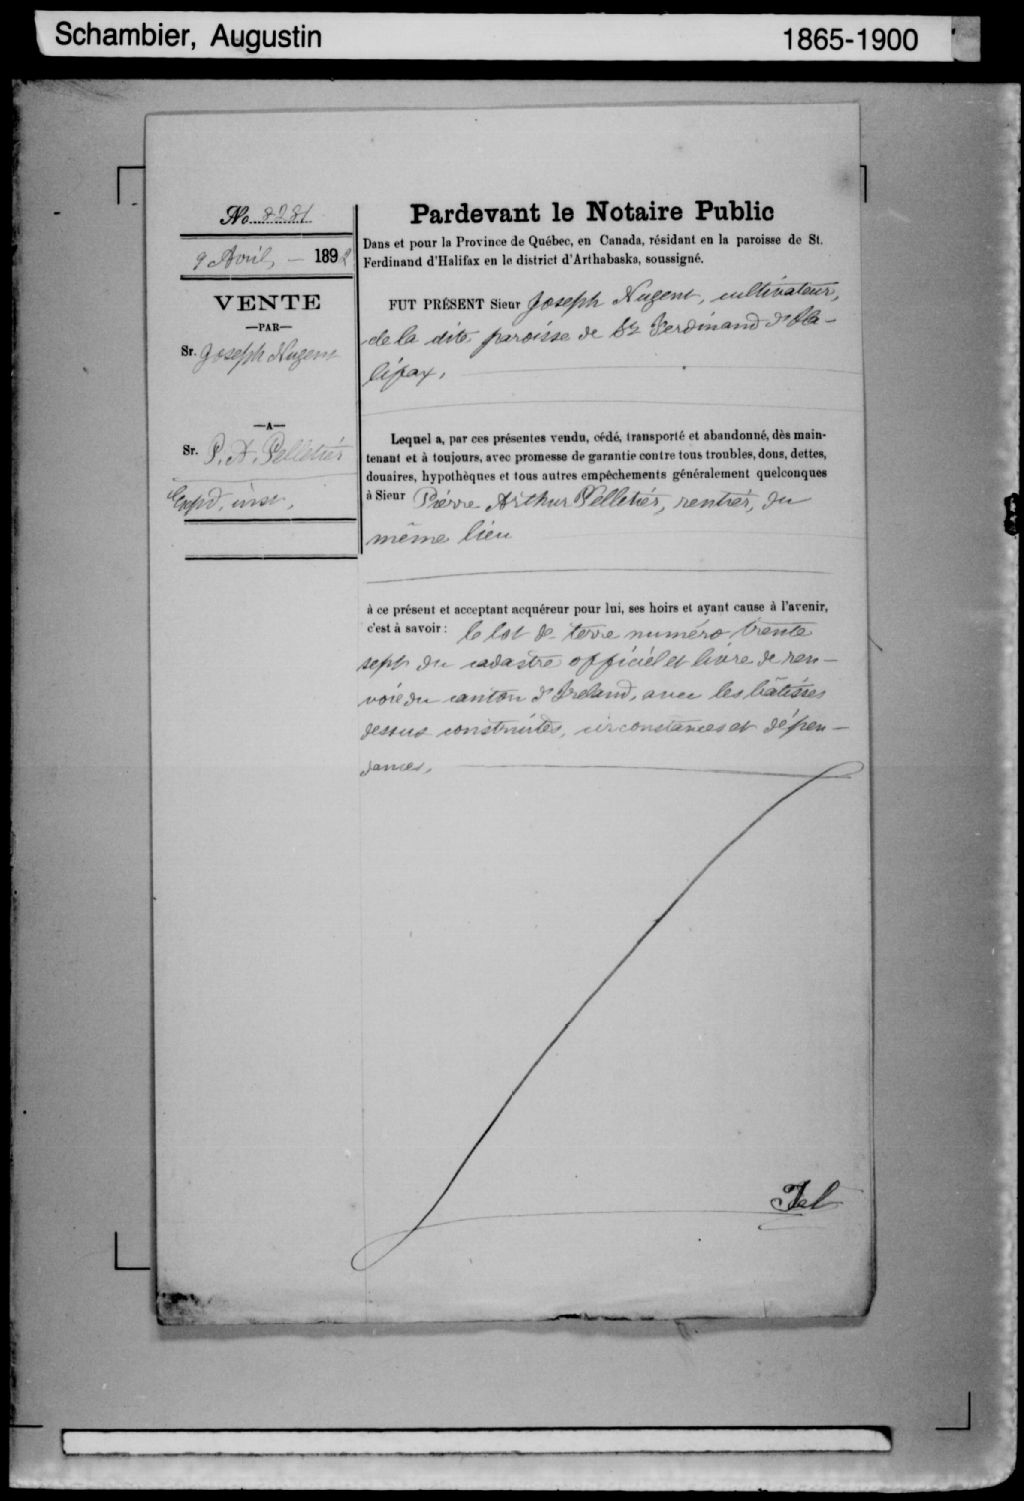 Schambier, Augustin 1865-1900
No 8281
9 Avril, — 1892
VENTE
—PAR—
Sr. Joseph Nugent
—A—
Sr. P. A. Pelletier
Expd. insc.
Pardevant le Notaire Public
Dans et pour la Province de Québec, en Canada, résidant en la paroisse de St.
Ferdinand d'Halifax en le district d'Arthabaska, soussigné.
FUT PRÉSENT Sieur Joseph Nugent, cultivateur,
de la dite paroisse de St Ferdinand d'Ha-
lifax,
Lequel a, par ces présentes vendu, cédé, transporté et abandonné, dès main-
tenant et à toujours, avec promesse de garantie contre tous troubles, dons, dettes,
douaires, hypothèques et tous autres empêchements généralement quelconques
à Sieur Pierre Arthur Pelletier, rentier, du
même lieu
à ce présent et acceptant acquéreur pour lui, ses hoirs et ayant cause à l'avenir,
c'est à savoir: le lot de terre numéro trente
sept du cadastre officiel et livre de ren-
voi du canton d'Ireland, avec les bâtisses
dessus construites, circonstances et dépen-
dances,